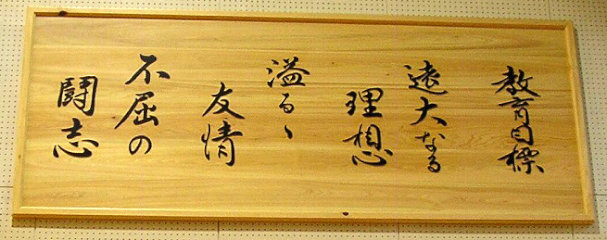 教育目標
遠大なる
理想
溢るゝ
友情
不屈の
闘志